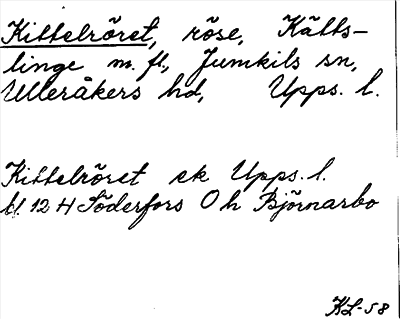 Kittelröret, röse, Kätts-
linge m. fl., Jumkils sn,
Ulleråkers hd, Upps. l.
Kittelröret ek Upps. l.
bl. 12 H Söderfors O h Björnarbo
KL-58